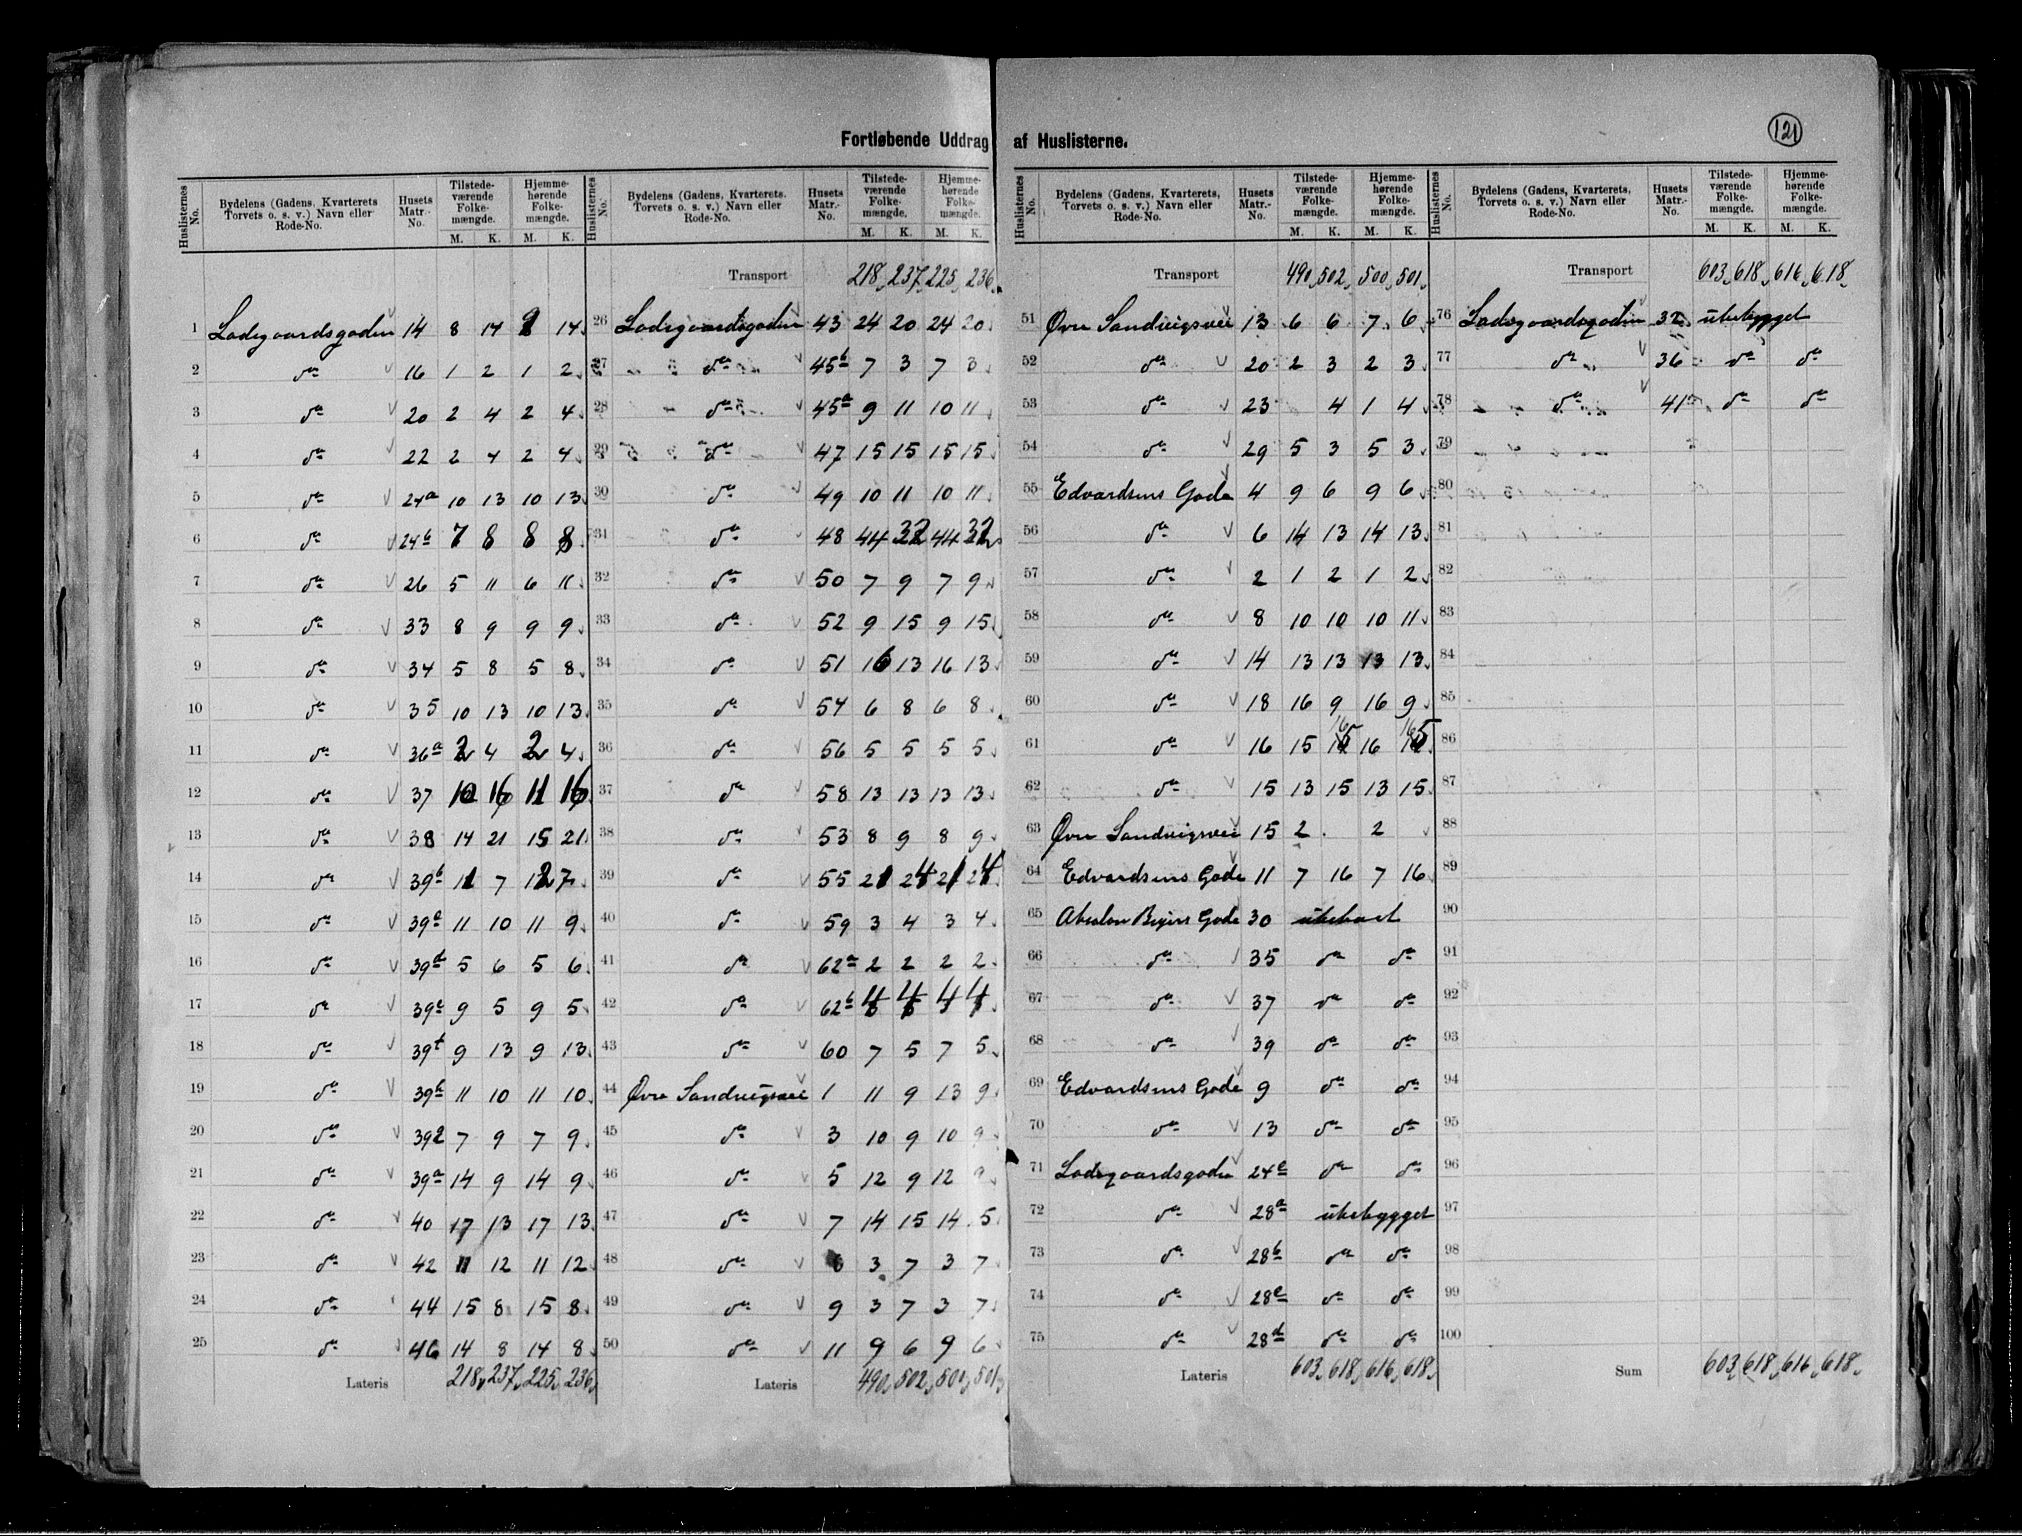 121
Fortløbende Uddrag af Huslisterne.
Huslisternes No. | Bydelens (Gadens, Kvarterets, Torvets o. s. v.) Navn eller Rode-No. | Husets Matr.-No. | Tilstedeværende Folkemængde. M. K. | Hjemmehørende Folkemængde. M. K.
1 Ladegaardsgaden 14 8 14 9 14
2 do 16 1 2 1 2
3 do 20 2 4 2 4
4 do 22 2 4 2 4
5 do 24a 10 13 10 13
6 do 24b 7 8 8 8
7 do 26 5 11 6 11
8 do 33 8 9 9 9
9 do 34 5 8 5 8
10 do 35 10 13 10 13
11 do 36a 2 4 2 4
12 do 37 10 16 11 16
13 do 38 14 21 15 21
14 do 39b 11 7 12 7
15 do 39a 11 10 11 9
16 do 39d 5 6 5 6
17 do 39e 9 5 9 5
18 do 39f 9 13 9 13
19 do 39h 11 10 11 10
20 do 39 7 9 7 9
21 do 39a 14 9 14 9
22 do 40 17 13 17 13
23 do 42 11 12 11 12
24 do 44 15 8 15 8
25 do 46 14 8 14 8
Lateris 218 237 225 236
Huslisternes No. | Bydelens (Gadens, Kvarterets, Torvets o. s. v.) Navn eller Rode-No. | Husets Matr.-No. | Tilstedeværende Folkemængde. M. K. | Hjemmehørende Folkemængde. M. K.
Transport 218 237 225 236
26 Ladegaardsgaden 43 24 20 24 20
27 do 45b 7 3 7 3
28 do 45a 9 11 10 11
29 do 47 15 15 15 15
30 do 49 10 11 10 11
31 do 48 44 32 44 32
32 do 50 7 9 7 9
33 do 52 9 15 9 15
34 do 51 16 13 16 13
35 do 54 6 8 6 8
36 do 56 5 5 5 5
37 do 58 13 13 13 13
38 do 53 8 9 8 9
39 do 55 21 24 21 24
40 do 59 3 4 3 4
41 do 62a 2 2 2 2
42 do 62b 4 4 4 4
43 do 60 7 5 7 5
44 Øvre Sandvigsvei 1 11 9 13 9
45 do 3 10 9 10 9
46 do 5 12 9 12 9
47 do 7 14 15 14 5
48 do 3 7 3 7
49 do 9 3 7 3 7
50 do 11 9 6 9 6
Lateris 490 502 500 501
Huslisternes No. | Bydelens (Gadens, Kvarterets, Torvets o. s. v.) Navn eller Rode-No. | Husets Matr.-No. | Tilstedeværende Folkemængde. M. K. | Hjemmehørende Folkemængde. M. K.
Transport 490 502 500 501
51 Øvre Sandvigsvei 13 6 6 7 6
52 do 20 2 3 2 3
53 do 23 4 1 4
54 do 29 5 3 5 3
55 Edvardsens Gade 4 9 6 9 6
56 do 6 14 13 14 13
57 do 2 1 2 1 2
58 do 8 10 10 10 11
59 do 14 13 13 13 13
60 do 18 16 9 16 9
61 do 16 15 15 16 15
62 do 15 13 15 13 15
63 Øvre Sandvigsvei 15 2 2
64 Edvardsens Gade 11 7 16 7 16
65 Absalon Beyers Gade 30 ubeboet
66 do 35 do do
67 do 37 do do
68 do 39 do do
69 Edvardsens Gade 9 do do
70 do 13 do do
71 Ladegaardsgaden 24c do do
72 do 28a ubebygget
73 do 28b do do
74 do 28c do do
75 do 28d do do
Lateris 603 618 616 618
Huslisternes No. | Bydelens (Gadens, Kvarterets, Torvets o. s. v.) Navn eller Rode-No. | Husets Matr.-No. | Tilstedeværende Folkemængde. M. K. | Hjemmehørende Folkemængde. M. K.
Transport 603 618 616 618
76 Ladegaardsgaden 32 ubebygget
77 do 36 do do
78 do 41 do do
79
80
81
82
83
84
85
86
87
88
89
90
91
92
93
94
95
96
97
98
99
100
Sum 603 618 616 618